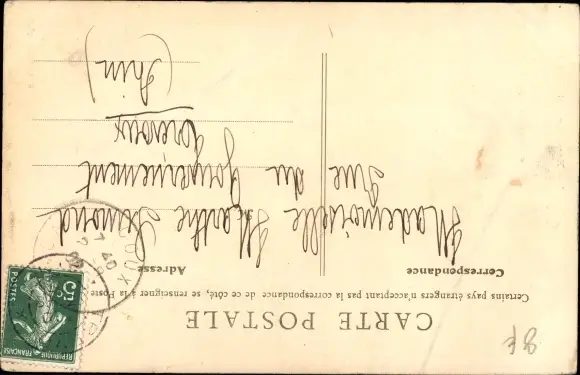 CARTE POSTALE
Certains pays étrangers n'acceptant pas la correspondance de ce côté, se renseigner à la Poste
Correspondance
Adresse
Mademoiselle Marthe
Rue du Gouvernement
Trévoux
(Ain)
5c
POSTES
RÉPUBLIQUE FRANÇAISE
7 40